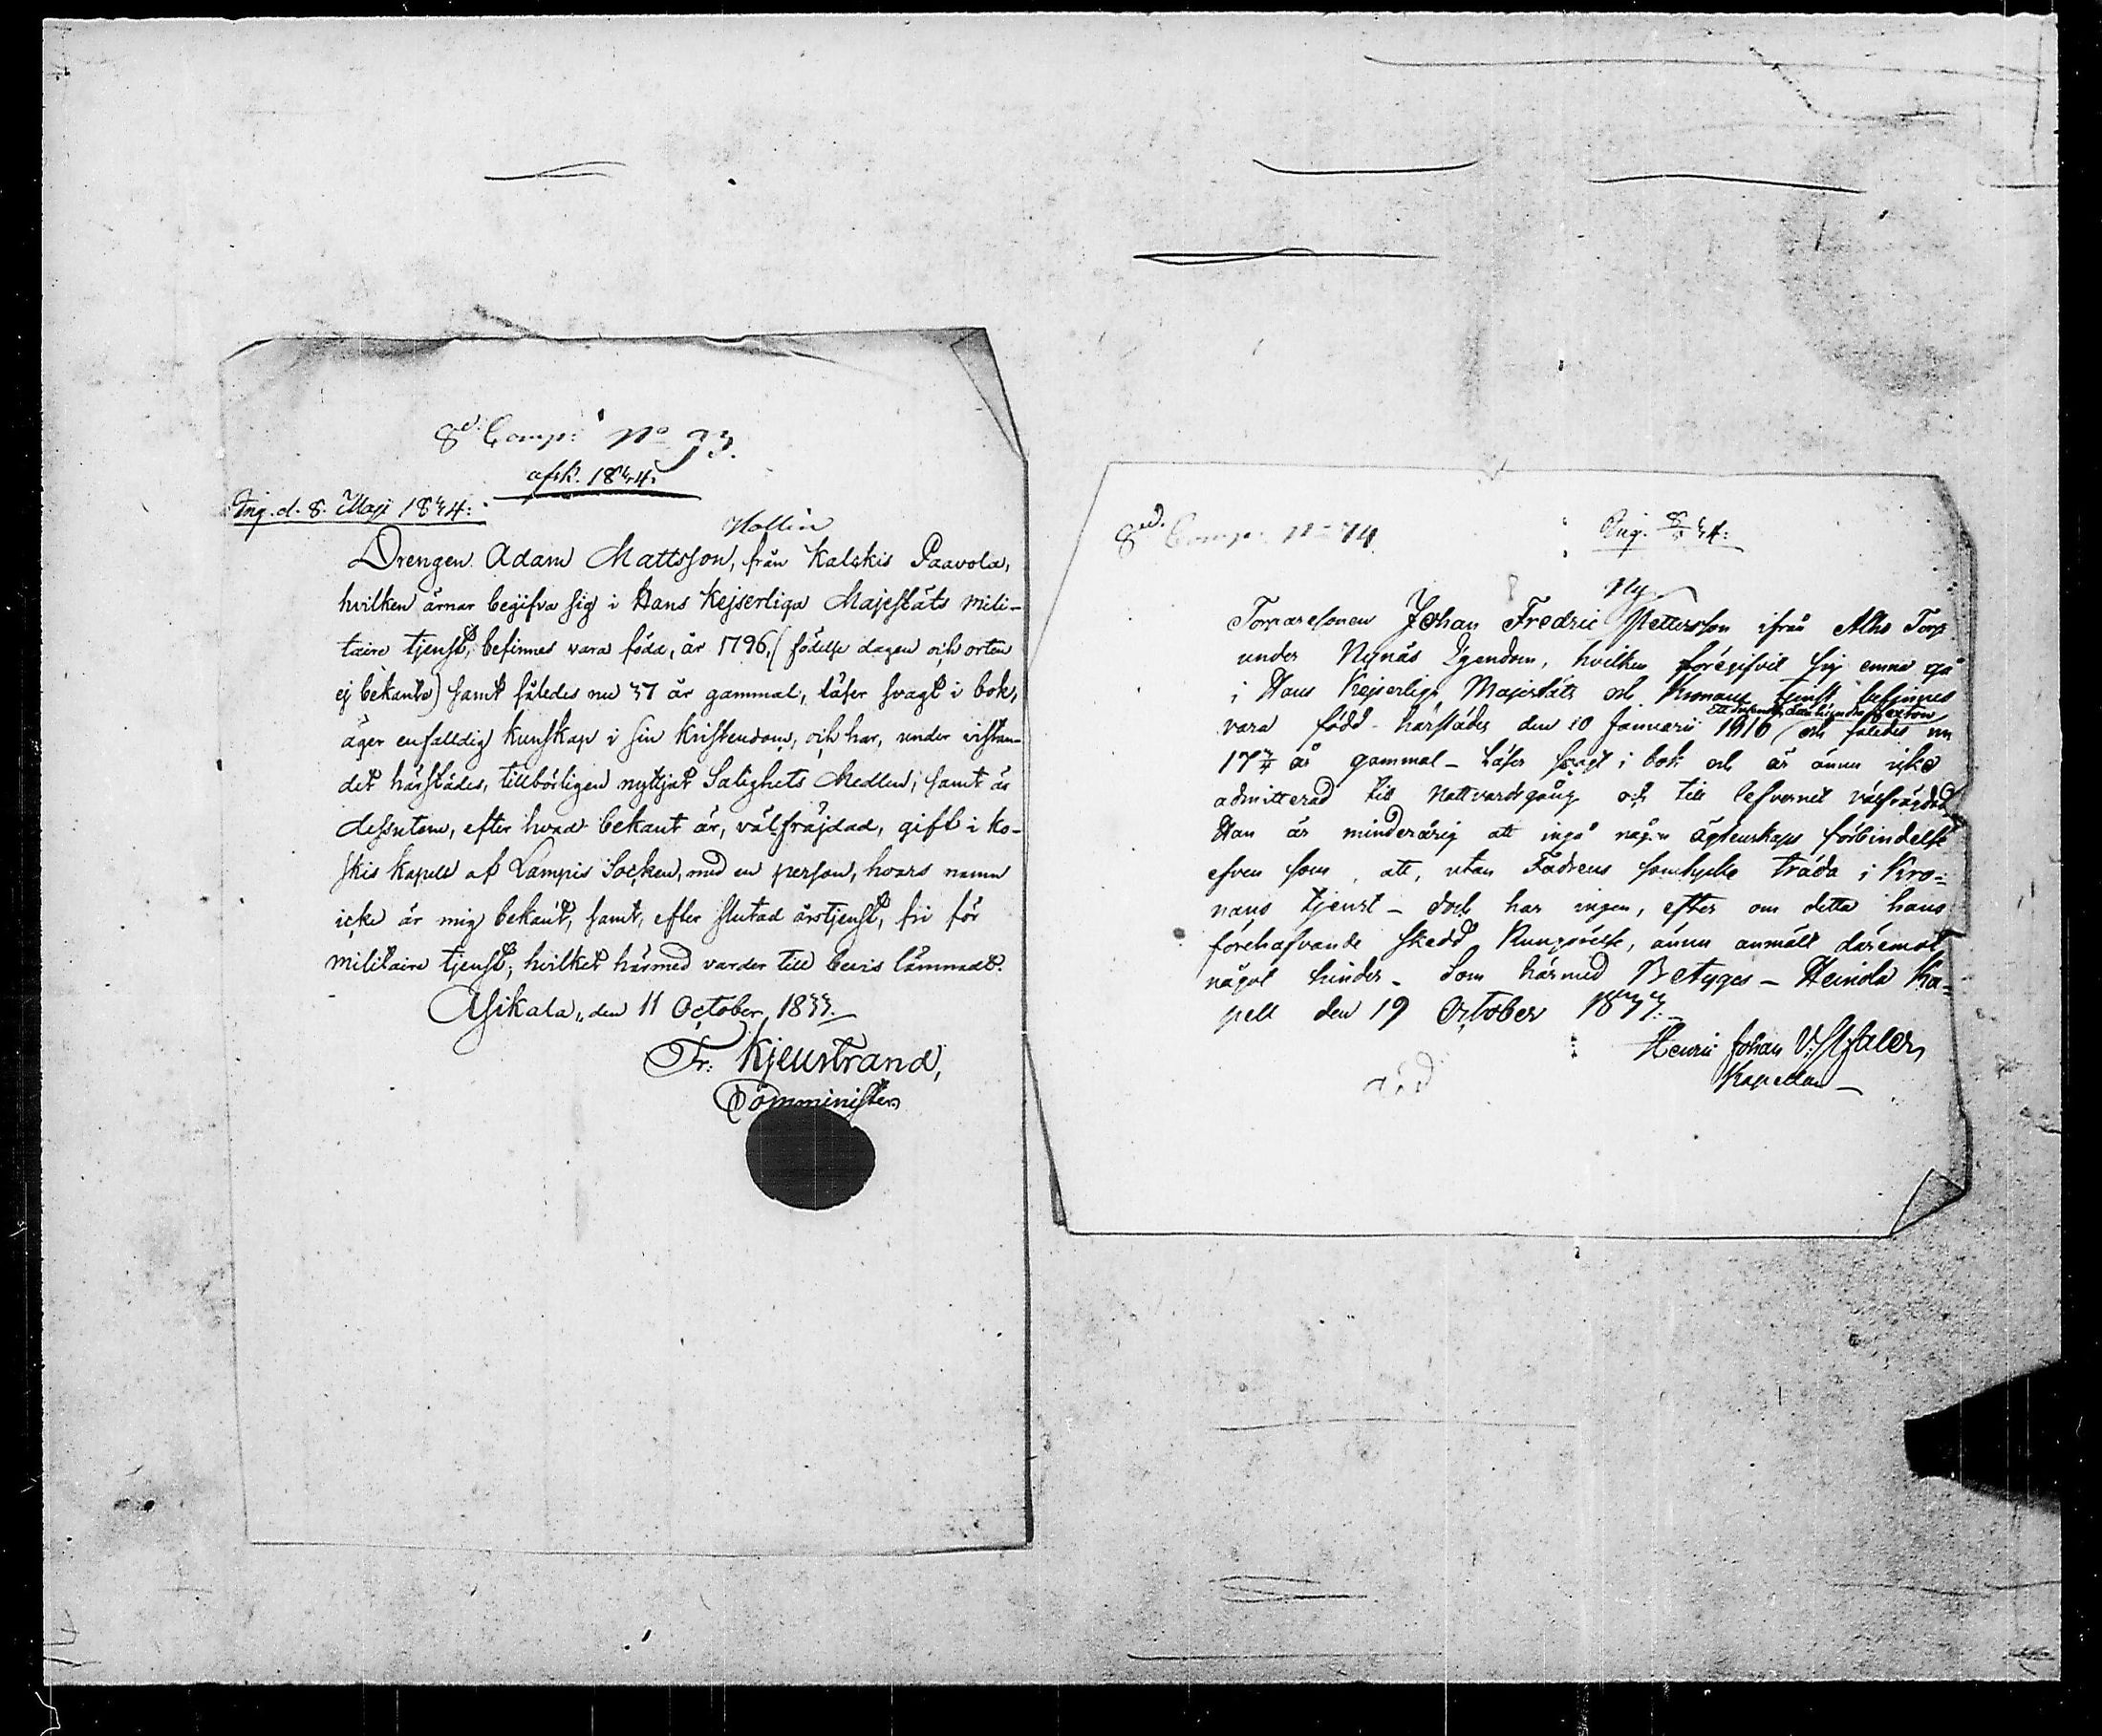 8de Comp: No 73.
afsk. 1834.
Ing. d. 8. Maji 1834:
Hollin
Drengen Adam Mattsson, från Kalckis Paavola,
hvilken ärnar begifva sig i Hans Kejserliga Majestäts mili-
taire tjenst, befinnes vara född, år 1796, (födelse dagen och orten
ej bekanta) samt således nu 37 år gammal, läser svagt i bok,
äger enfalldig kunskap i sin Kristendom, och har, under vistan-
det härstädes, tillbörligen nyttjat Salighets Medlen; samt är
dessutom, efter hvad bekant är, välfräjdad, gift i Ko-
skis Kapell af Lampis Socken, med en person, hvars namn
icke är mig bekant, samt, efter slutad årstjenst, fri för
militaire tjenst; hvilket härmed varder till bevis lämnadt.
Asikala, den 11 October, 1833.
Fr: Kjeustrand,
Comminister
8de Comp: No 74
Ing. 8/5 34:
Ny
Torparesonen Johan Fredric Pettersson ifrån Alho Torp
under Nynäs Egendom, hvilken föregifvit sig ämna gå
i Hans Kejserliga Majestäts och Kronans tjenst befinnes
Ett tusende åtta hundra sexton
vara född härstädes den 10 Januarii 1816 och således nu
17 3/4 år gammal - Läser svagt i bok och är ännu icke
admitterad till Nattvardsgång och till lefvernet välfräjdad
Han är minderårig att ingå någon ägtenskaps förbindelse
efven som, att, utan Fadrens samtycke träda i Kro-
nans tjenst - och har ingen, efter om detta hans
förehafvande skedd Kungörelse, ännu anmält däremot
något hinder - Som härmed Betygas - Heinola Ka-
pell den 19 October 1833.
Henric Johan
Kapellan